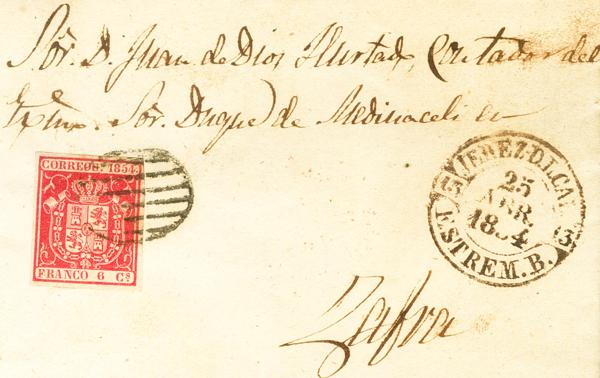 Sór. D. Juan de Dios Hurtado, Contador del
Exmo. Sór. Duque de Medinaceli en
CORREOS. 1854.
FRANCO 6 Cs.
JEREZ-D.L.CA
25
ABR.
1854
ESTREM. B.
Zafra